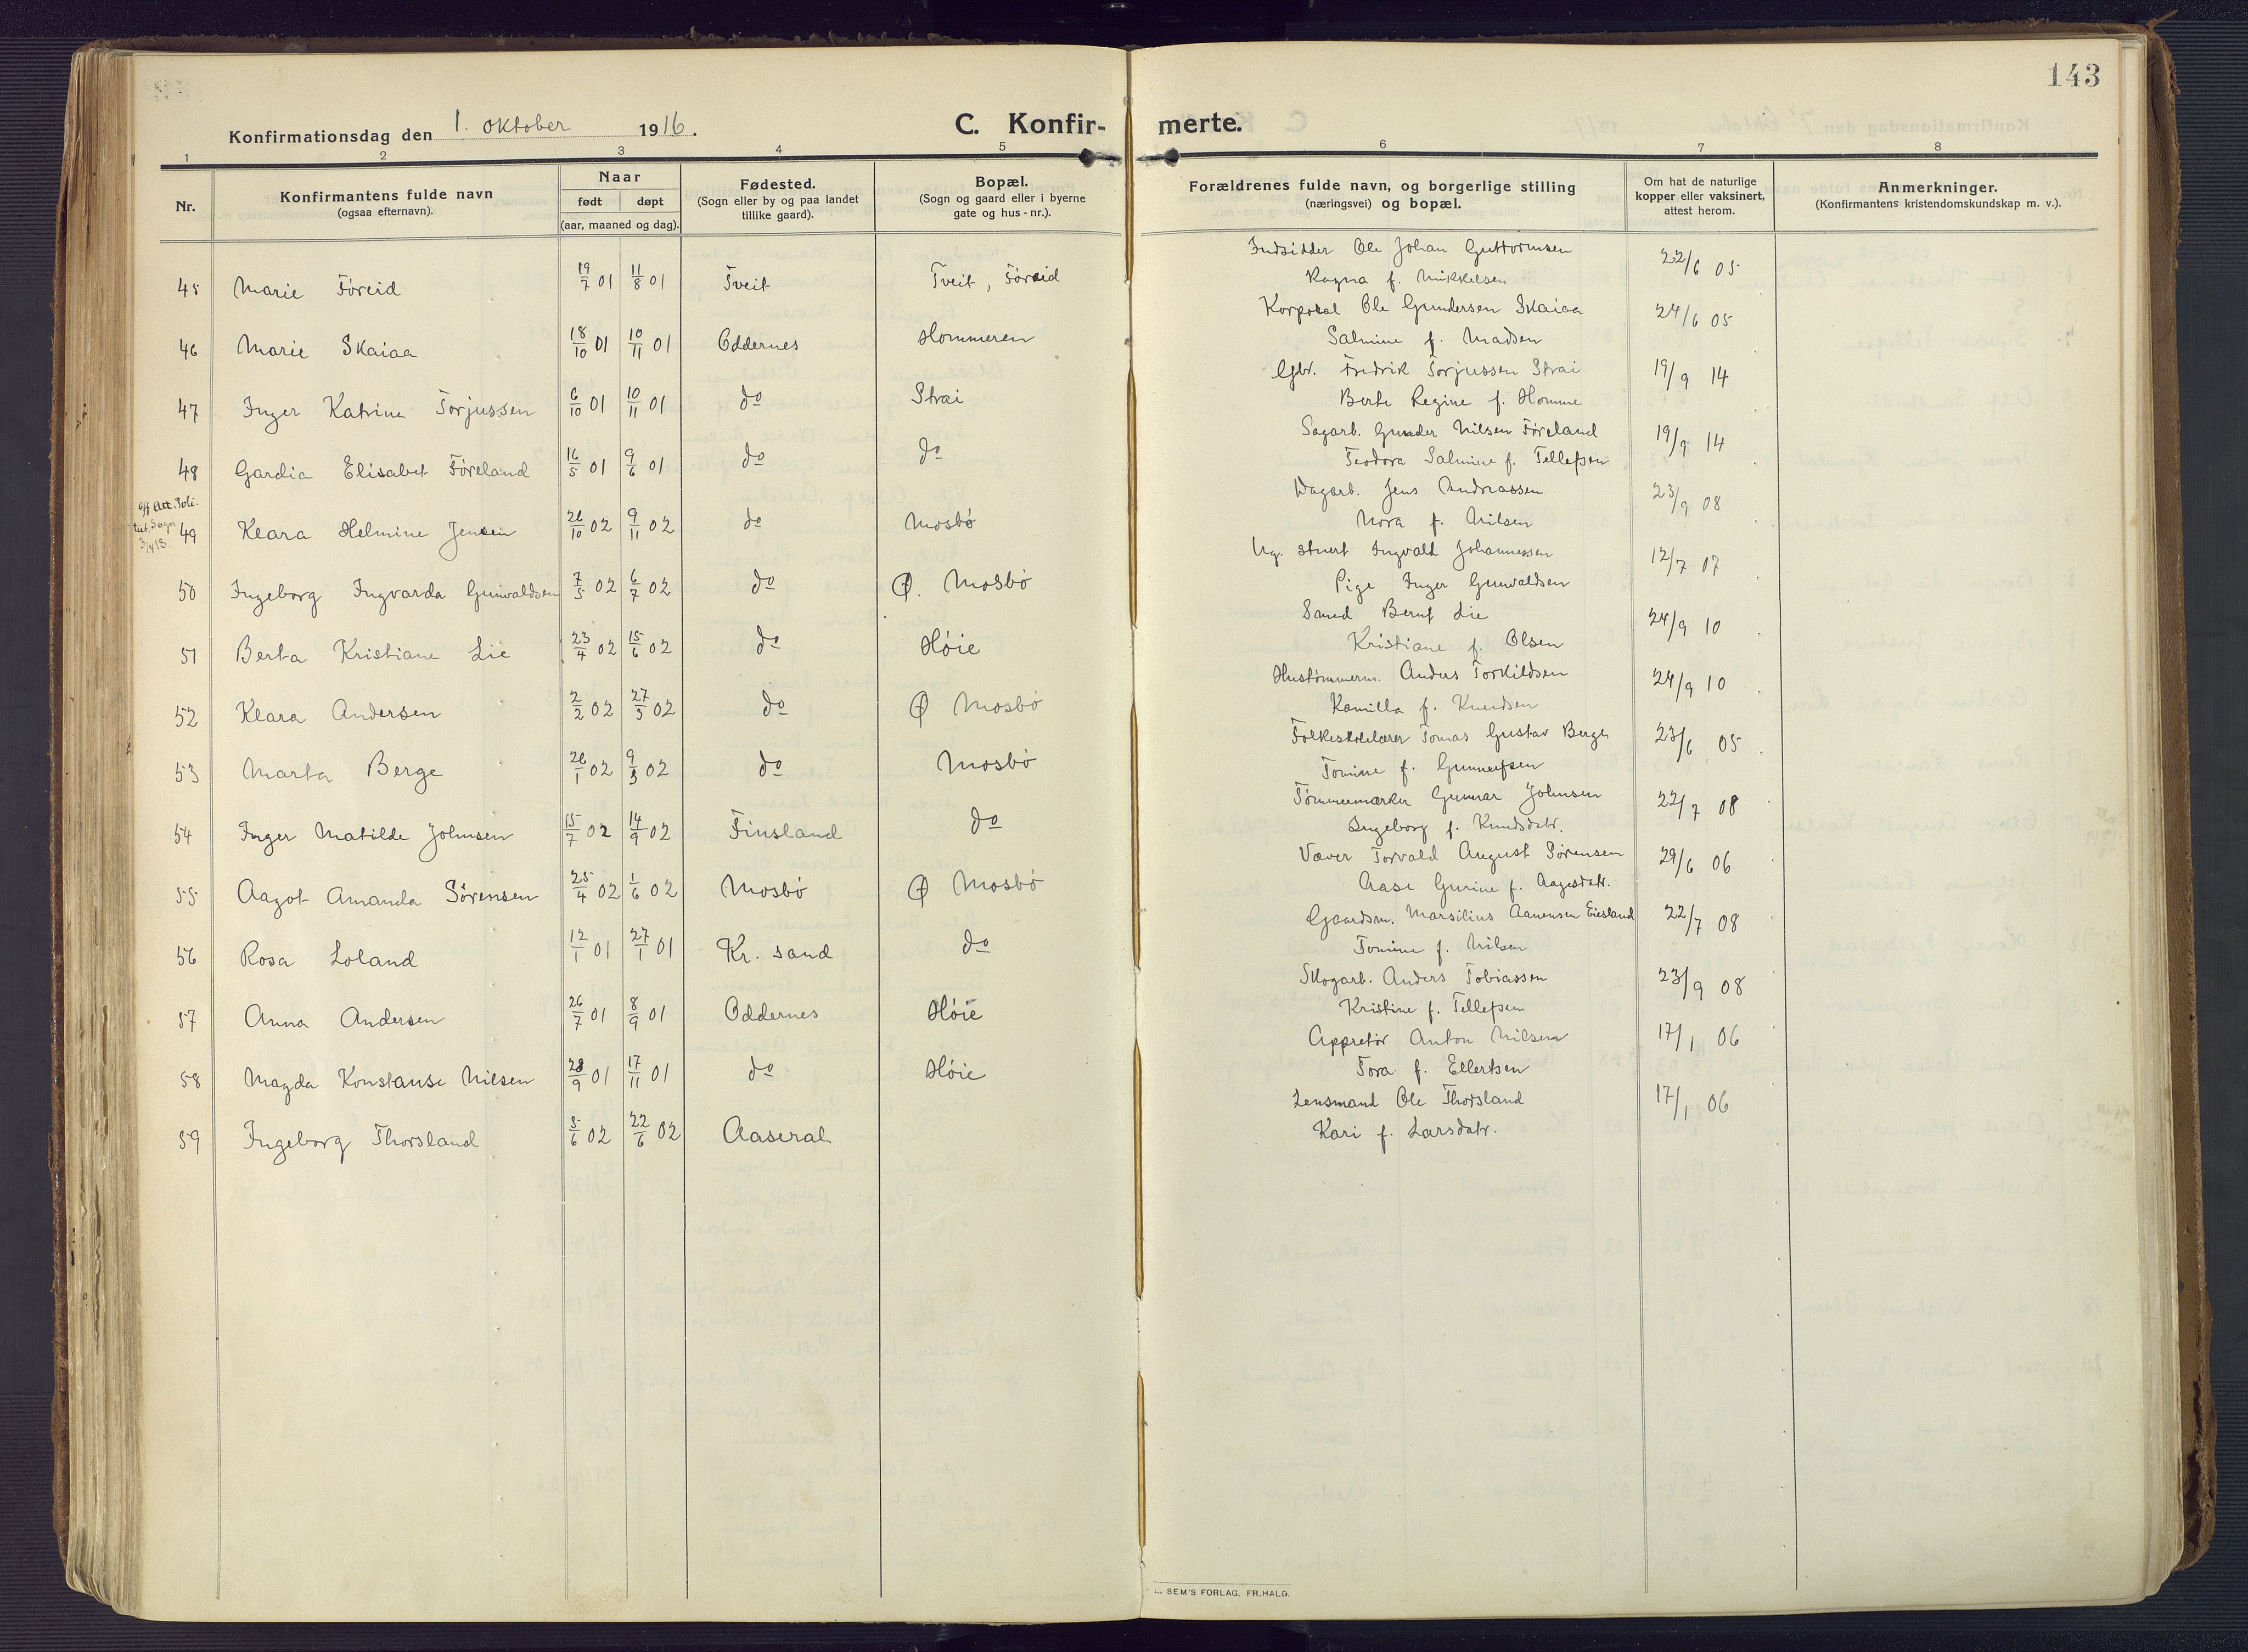 143
Konfirmationsdag den 1. oktober 1916. C. Konfir- merte.
1 2 3 4 5 6 7 8
Nr. Konfirmantens fulde navn (ogsaa efternavn). Naar født døpt (aar, maaned og dag). Fødested. (Sogn eller by og paa landet tillike gaard). Bopæl. (Sogn og gaard eller i byerne gate og hus-nr.). Forældrenes fulde navn, og borgerlige stilling (næringsvei) og bopæl. Om hat de naturlige kopper eller vaksinert, attest herom. Anmerkninger. (Konfirmantens kristendomskundskap m. v.).
45 Marie Föreid 19/7 01 11/8 01 Tveit Tveit, Föreid Indsidder Ole Johan Guttormsen 22/6 05
Ragna f. Mikkelsen
46 Marie Skaiaa 18/10 01 10/11 01 Oddernes Hommeren Korporal Ole Gundersen Skaiaa 24/6 05
Salmine f. Madsen
47 Inger Katrine Torjussen 6/10 01 10/11 01 do Strai Gbr. Fredrik Torjussen Strai 19/9 14
Berte Regine f. Homme
48 Gardia Elisabet Föreland 16/5 01 9/6 01 do do Sagarb. Gunder Nilsen Föreland 19/9 14
Teodora Salmine f. Tellefsen
49 Klara Helmine Jensen 26/10 02 9/11 02 do Mosbö Dagarb. Jens Andreassen 23/9 08
Nora f. Nilsen
50 Ingeborg Ingvarda Gunvaldsen 7/5 02 6/7 02 do Ø. Mosbö Ug. stuert Ingvald Johannessen 12/7 07
Pige Inger Gunvaldsen
51 Berta Kristiane Lie 23/4 02 15/6 02 do Höie Smed Bernt Lie 24/9 10
Kristiane f. Olsen
52 Klara Andersen 2/2 02 27/3 02 do Ø Mosbö Hustömmerm. Anders Torkildsen 24/9 10
Kamilla f. Knudsen
53 Marta Berge 26/1 02 9/3 02 do Mosbö Folkeskolelærer Tomas Gustav Berge 23/6 05
Tomine f. Gunnufsen
54 Inger Matilde Johnsen 15/7 02 14/9 02 Finsland do Tömmermærker Gunnar Johnsen 22/7 08
Ingeborg f. Knudsdatr.
55 Aagot Amanda Sörensen 25/4 02 1/6 02 Mosbö Ø Mosbö Væver Torvald August Sörensen 29/6 06
Aase Gurine f. Aagesdatr.
56 Rosa Loland 12/1 01 27/1 01 Kr. sand do Gaardsm. Marsilius Aanensen Eiesland 22/7 08
Tomine f. Nilsen
57 Anna Andersen 26/7 01 8/9 01 Oddernes Höie Skogarb. Anders Tobiassen 23/9 08
Kristine f. Tellefsen
58 Magda Konstanse Nilsen 28/9 01 17/11 01 do Höie Appretör Anton Nilsen 17/1 06
Tora f. Ellertsen
59 Ingeborg Thorsland 5/6 02 22/6 02 Aaseral Lensmand Ole Thorsland 17/1 06
Kari f. Larsdatr.
SEM'S FORLAG. FR.HALD.